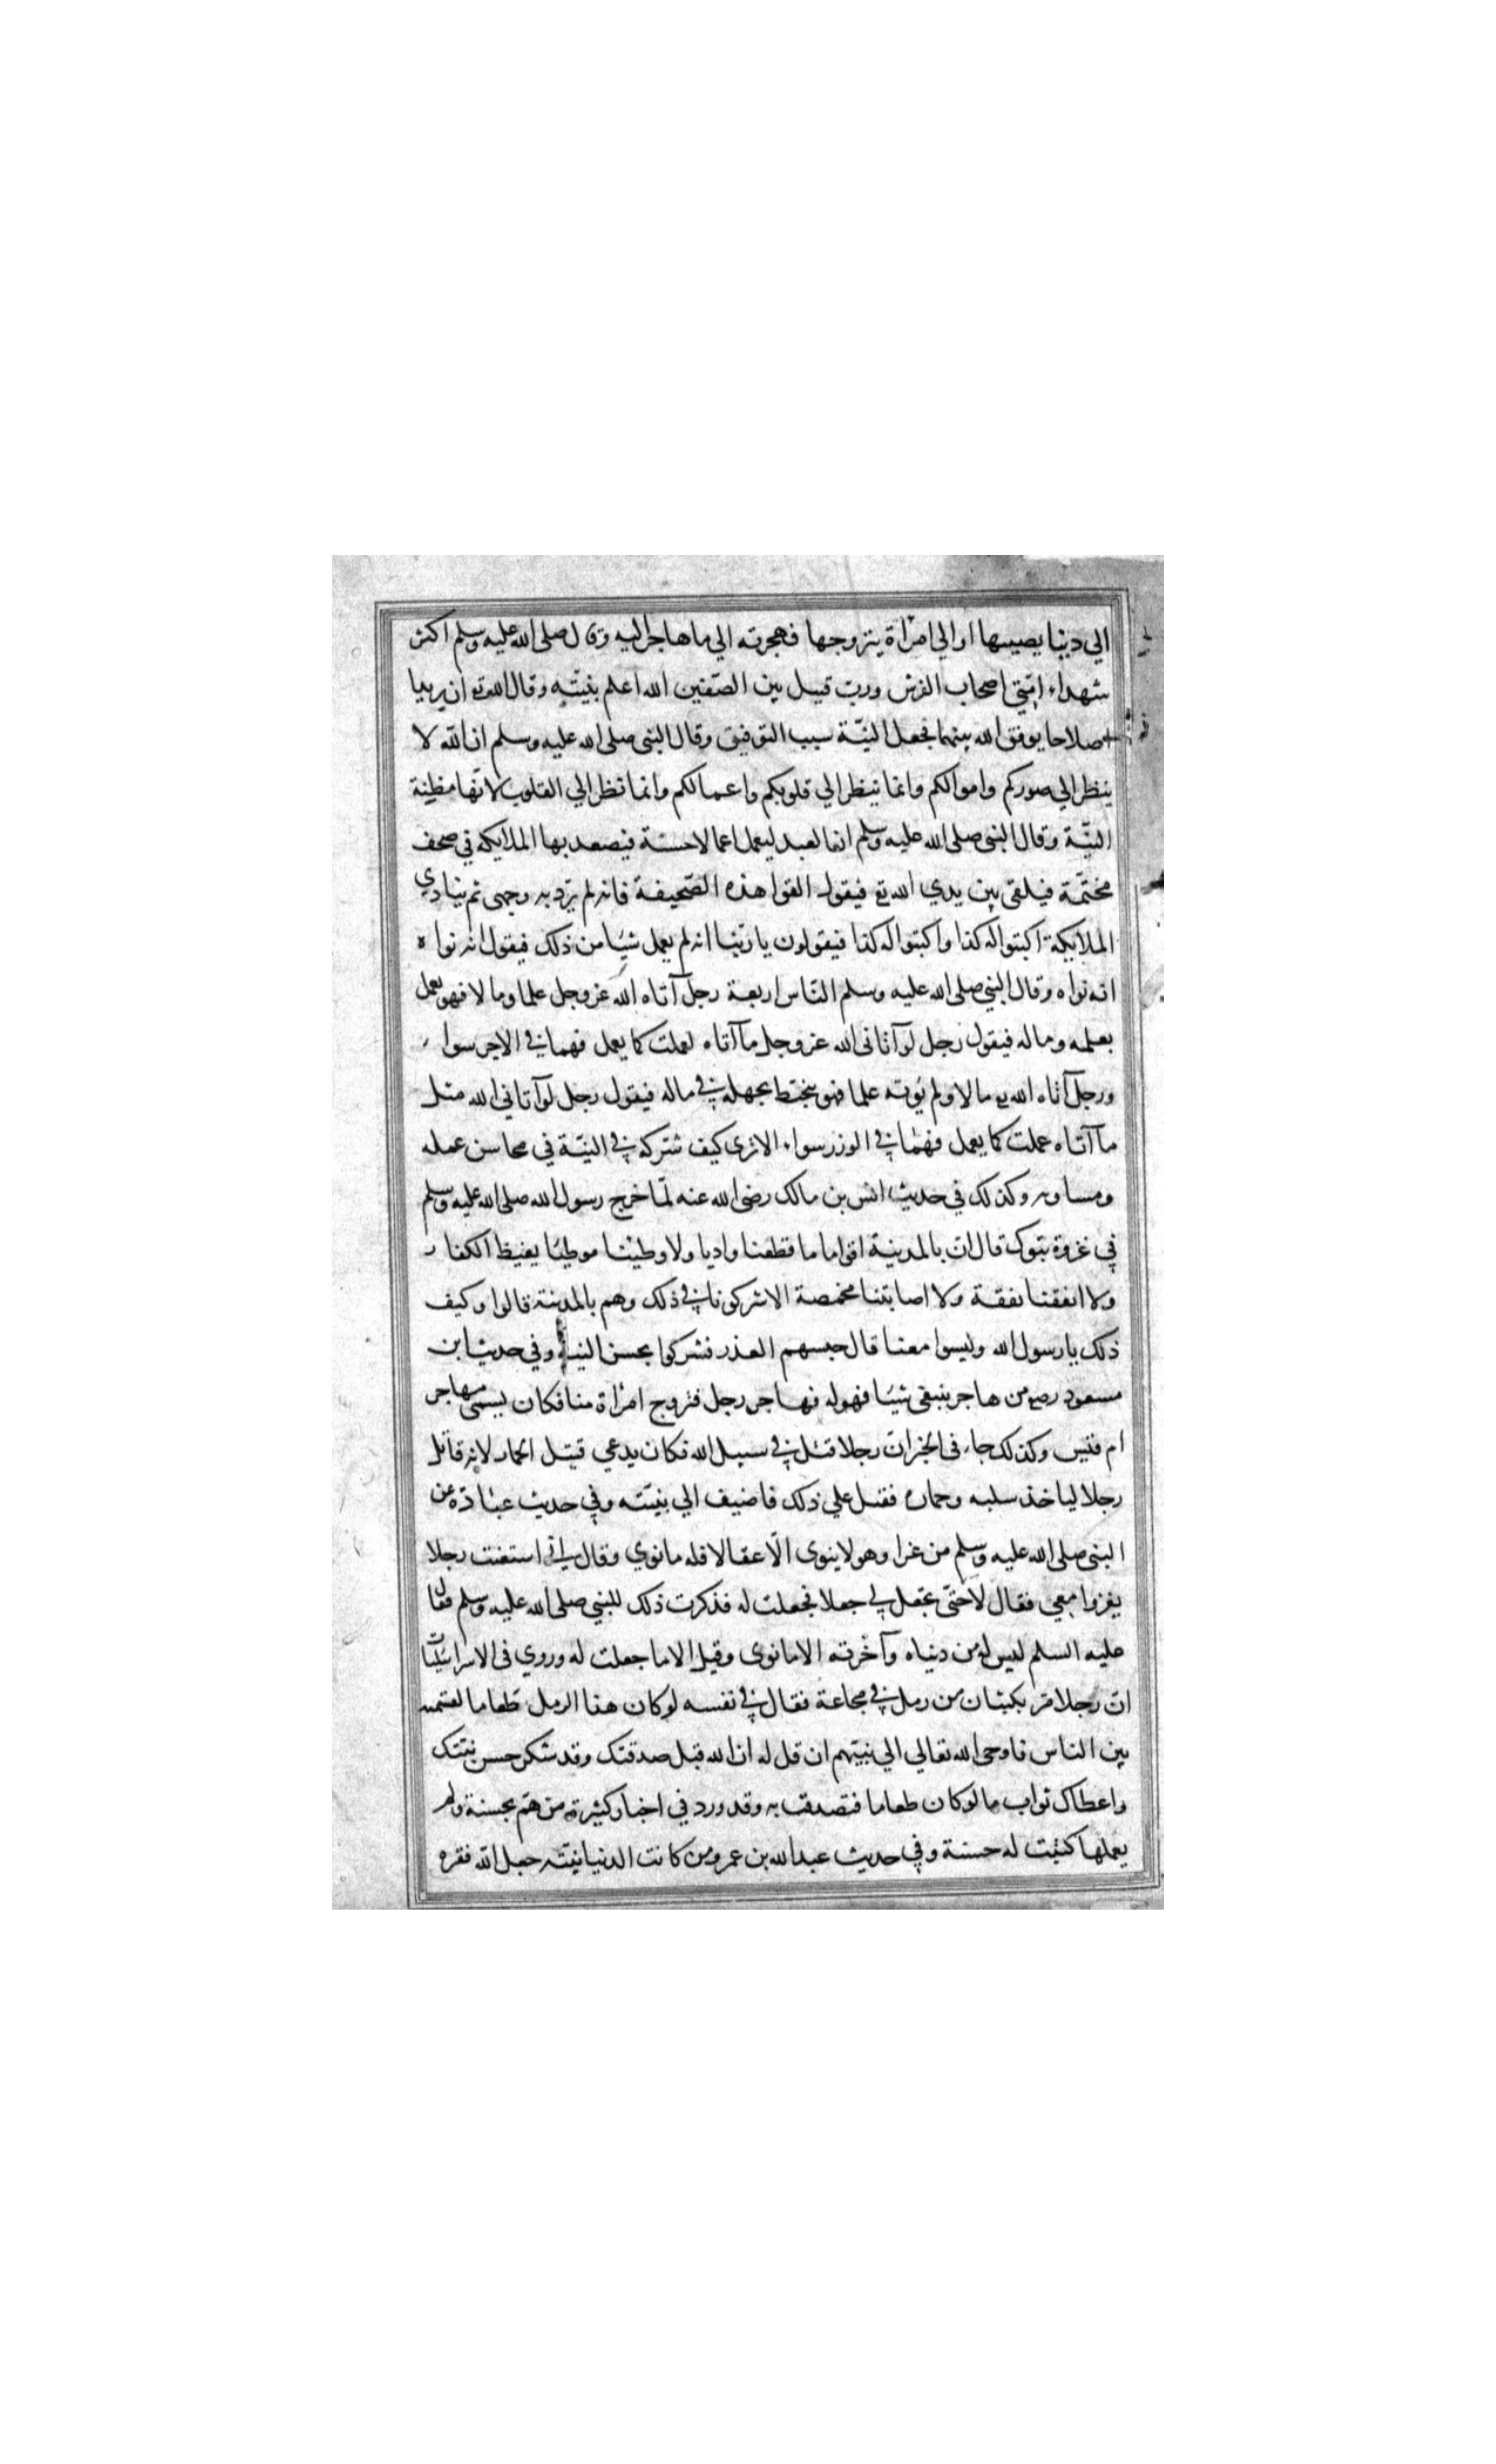 الي دنيا يصيبها او الي امرأة يتزوجها فهجرته الي ما هاجر اليه وقال صلى الله عليه وسلم اكثر
شهداء امتي اصحاب الفرش ورب قتيل بين الصفين الله اعلم بنيته وقال الله تع ان يريدا
اصلاحا يوفق الله بينهما فجعل النية سبب التوفيق وقال النبي صلى الله عليه وسلم ان الله لا
ينظر الي صوركم واموالكم وانما ينظر الي قلوبكم واعمالكم وانما نظر الي القلوب لانها مظنة
النية وقال النبي صلى الله عليه وسلم ان العبد ليعمل اعمالا حسنة فيصعد بها الملايكة في صحف
مختمة فيلقى بين يدي الله تع فيقول القوا هذه الصحيفة فانه لم يرد به وجهى ثم ينادي
الملايكة اكتبوا له كذا واكتبوا له كذا فيقولون يا ربنا انه لم يعمل شيئا من ذلك فيقول انه نواه
انه نواه وقال النبي صلى الله عليه وسلم الناس اربعة رجل آتاه الله عز وجل علما ومالا فهو يعمل
بعلمه وماله فيقول رجل لو آتانى الله عز وجل ما آتاه لعملت كما يعمل فهما في الاجر سواء
ورجل آتاه الله تع مالا ولم يؤته علما فهو يتخبط بجهله في ماله فيقول رجل لو آتاني الله مثل
ما آتاه عملت كما يعمل فهما في الوزر سواء الا ترى كيف شركه في النية في محاسن عمله
ومساويه وكذلك في حديث انس بن مالك رضى الله عنه لما خرج رسول الله صلى الله عليه وسلم
في غزوة تبوك قال ان بالمدينة اقواما ما قطعنا واديا ولا وطيئنا موطيئا يغيظ الكفار
ولا انفقنا نفقة ولا اصابتنا مخمصة الا شركونا في ذلك وهم بالمدينة قالوا وكيف
ذلك يا رسول الله وليسوا معنا قال حبسهم العذر فشركوا بحسن النية وفي حديث ابن
مسعود رضه من هاجر يبتغى شيئا فهو له فهاجر رجل فتزوج امرأة منا فكان يسمى مهاجر
ام قيس وكذلك جاء فى الخبر ان رجلا قتل في سبيل الله فكان يدعي قتيل الحمار لانه قاتل
رجلا لياخذ سلبه وحماره فقتل علي ذلك فاضيف الي نيته وفي حديث عبادة عن
النبى صلى الله عليه وسلم من غزا وهو لا ينوى الا عقالا فله ما نوي وقال استعنت رجلا
يغزوا معي فقال لا حتى تجعل لي جعلا فجعلت له فذكرت ذلك للنبي صلى الله عليه وسلم فقال
عليه السلم ليس له من دنياه وآخرته الا ما نوى وقيل الا ما جعلت له وروي فى الاسرائيليات
ان رجلا مر بكثبان من رمل في مجاعة فقال في نفسه لو كان هذا الرمل طعاما لقسمته
بين الناس فاوحى الله تعالي الي نبيهم ان قل له ان الله قبل صدقتك وقد شكر حسن نيتك
واعطاك ثواب ما لو كان طعاما فتصدقت به وقد ورد في اخبار كثيرة من هم بحسنة ولم
يعملها كتبت له حسنة وفي حديث عبد الله بن عمرو من كانت الدنيا نيته جعل الله فقره